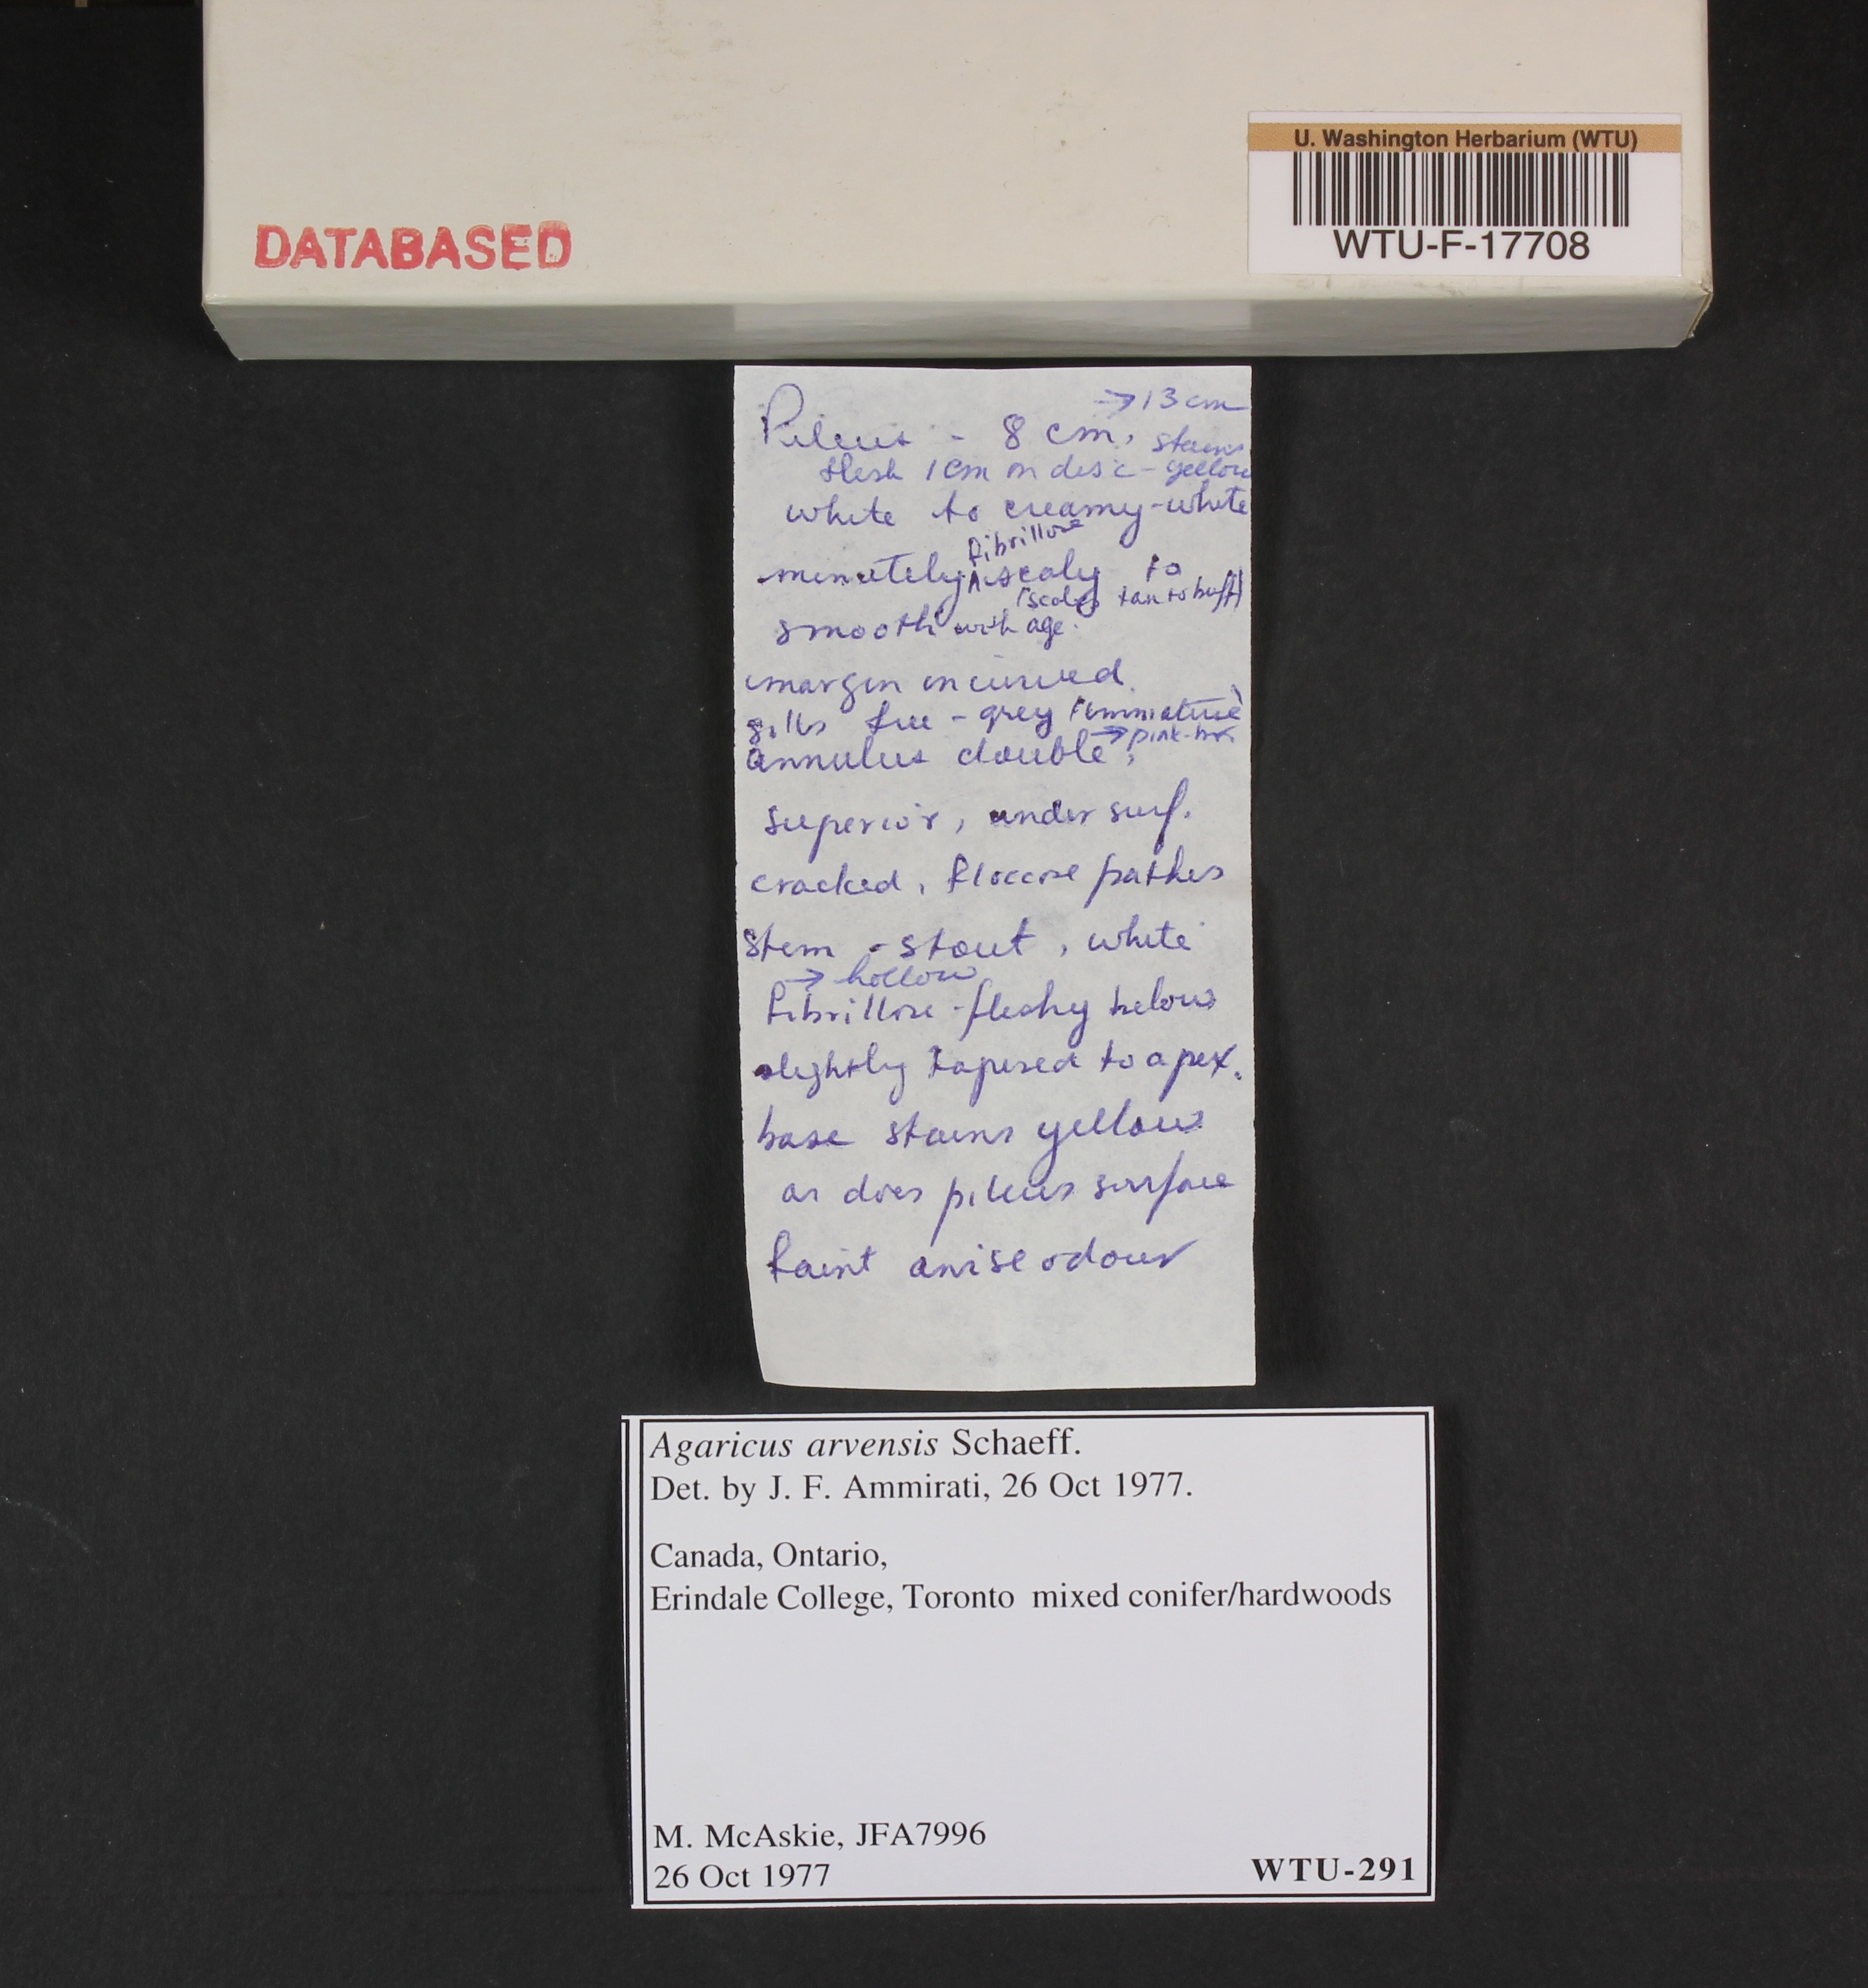 U. Washington Herbarium (WTU)
WTU-F-17708
DATABASED
→ 13 cm
Pileus - 8 cm, stains
flesh 1 cm on disc - yellow
white to creamy-white
fibrillose
minutely ∧ scaly to
(scales tan to buff)
smooth with age.
margin incurved.
gills free - grey (immature)
→ pink-
annulus double,
superior, under surf.
cracked, floccose patches
Stem - stout, white
→ hollow
fibrillose-fleshy below
slightly tapered to apex.
base stains yellow
as does pileus surface
faint anise odour
Agaricus arvensis Schaeff.
Det. by J. F. Ammirati, 26 Oct 1977.
Canada, Ontario,
Erindale College, Toronto mixed conifer/hardwoods
M. McAskie, JFA7996
26 Oct 1977
WTU-291